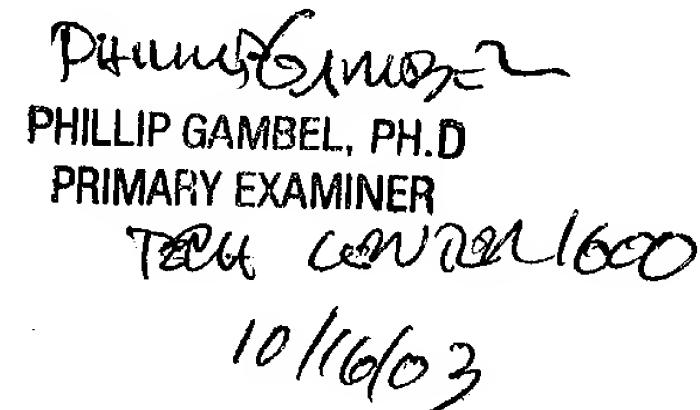 Phillip Gambel
PHILLIP GAMBEL, PH.D
PRIMARY EXAMINER
TECH CENTER 1600
10/16/03